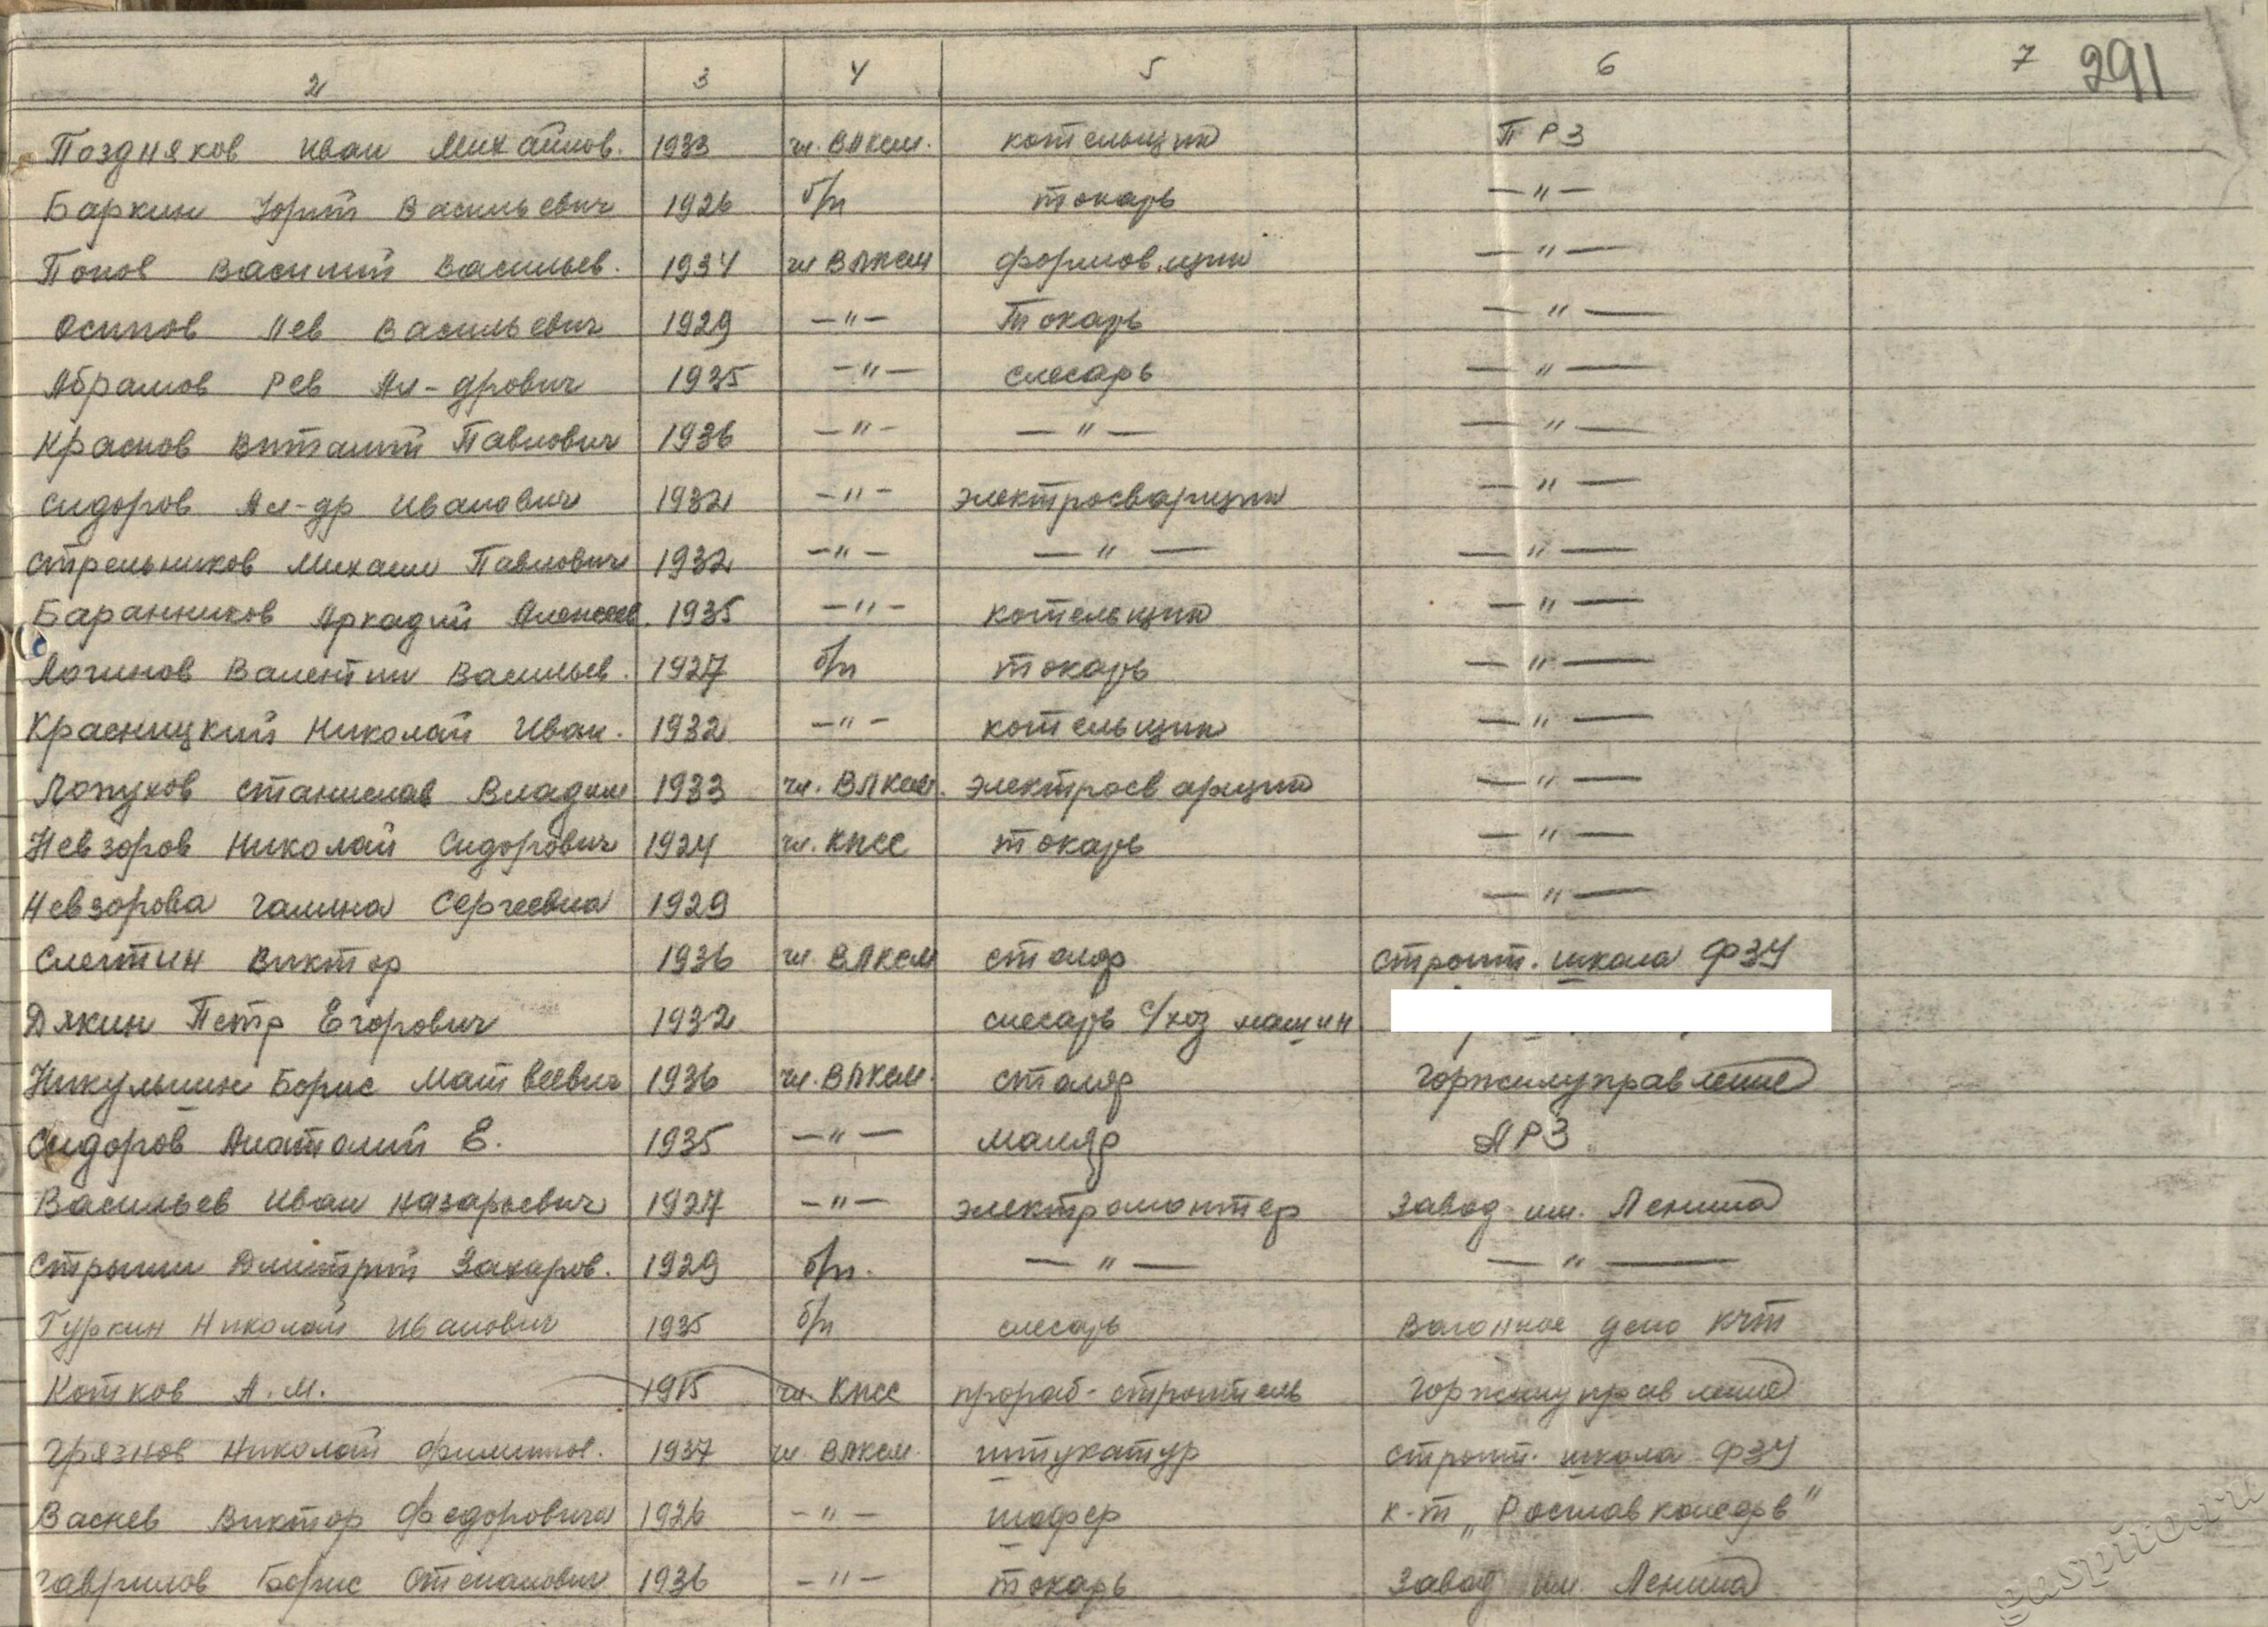 2 3 4 5 6 7 291
Поздняков Иван Михайлов. 1933 чл. ВЛКСМ. котельщик ПРЗ
Баркин Юрий Васильевич 1926 б/п токарь —"—
Попов Василий Васильев. 1934 чл ВЛКСМ формовщик —"—
Осипов Лев Васильевич 1929 —"— Токарь —"—
Абрамов Рев Ал-дрович 1935 —"— слесарь —"—
Краснов Виталий Павлович 1936 —"— —"— —"—
Сидоров Ал-др Иванович 1932 —"— электросварщик —"—
Стрельников Михаил Павлович 1932 —"— —"— —"—
Баранников Аркадий Алексеев. 1935 —"— котельщик —"—
Логинов Валентин Васильев. 1927 б/п токарь —"—
Красницкий Николай Иван. 1932 —"— котельщик —"—
Лопухов Станислав Владим 1933 чл. ВЛКСМ. электросварщик —"—
Невзоров Николай Сидорович 1924 чл. КПСС токарь —"—
Невзорова Галина Сергеевна 1929 —"—
Слетин Виктор 1936 чл. ВЛКСМ столяр строит. школа ФЗУ
Дякин Петр Егорович 1932 слесарь с/хоз машин
Никульшин Борис Матвеевич 1936 чл. ВЛКСМ. столяр Горжилуправление
Сидоров Анатолий Е. 1935 —"— маляр АРЗ
Васильев Иван Назарьевич 1927 —"— электромонтер Завод им. Ленина
Стрыгин Дмитрий Захаров. 1929 б/п. —"— —"—
Гуркин Николай Иванович 1935 б/п слесарь Вагонное депо
Котков А.М. 1915 чл. КПСС прораб-строитель Горжилуправление
Грязнов Николай Филиппов. 1937 чл. ВЛКСМ. штукатур строит. школа ФЗУ
Васнев Виктор Федорович 1926 —"— шофер к-т „Росглавконсерв"
Гаврилов Борис Степанович 1936 —"— токарь Завод им. Ленина
gaspito.ru